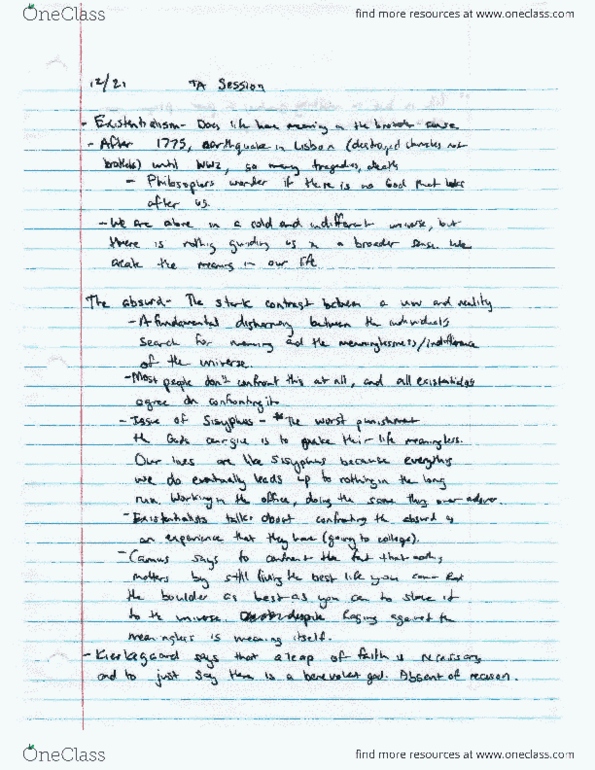 OneClass
find more resources at www.oneclass.com
12/21 TA Session
- Existentialism - Does life have meaning in the broader sense
- After 1775, earthquake in Lisbon (destroyed churches not
brothels) until WW2, so many tragedies, death
- Philosophers wonder if there is no God that looks
after us.
- We are alone in a cold and indifferent universe, but
there is nothing guiding us in a broader sense. We
create the meaning in our life.
The absurd - The stark contrast between a view and reality
- A fundamental disharmony between the individual's
search for meaning and the meaninglessness/indifference
of the universe.
- Most people don't confront this at all, and all existentialists
agree on confronting it.
- Issue of Sisyphus - *The worst punishment
the Gods can give is to make their life meaningless.
Our lives are like Sisyphus because everything
we do eventually leads up to nothing in the long
run. Working in the office, doing the same thing over and over.
- Existentialists talk about confronting the absurd as
an experience that they have (going to college).
- Camus says to confront the fact that nothing
matters by still living the best life you can.
the boulder as best as you can to it
to the universe. despite Raging against the
meaningless is meaning itself.
- Kierkegaard says that a leap of faith is necessary
and to just say there is a benevolent god. Absent of reason.
OneClass
find more resources at www.oneclass.com